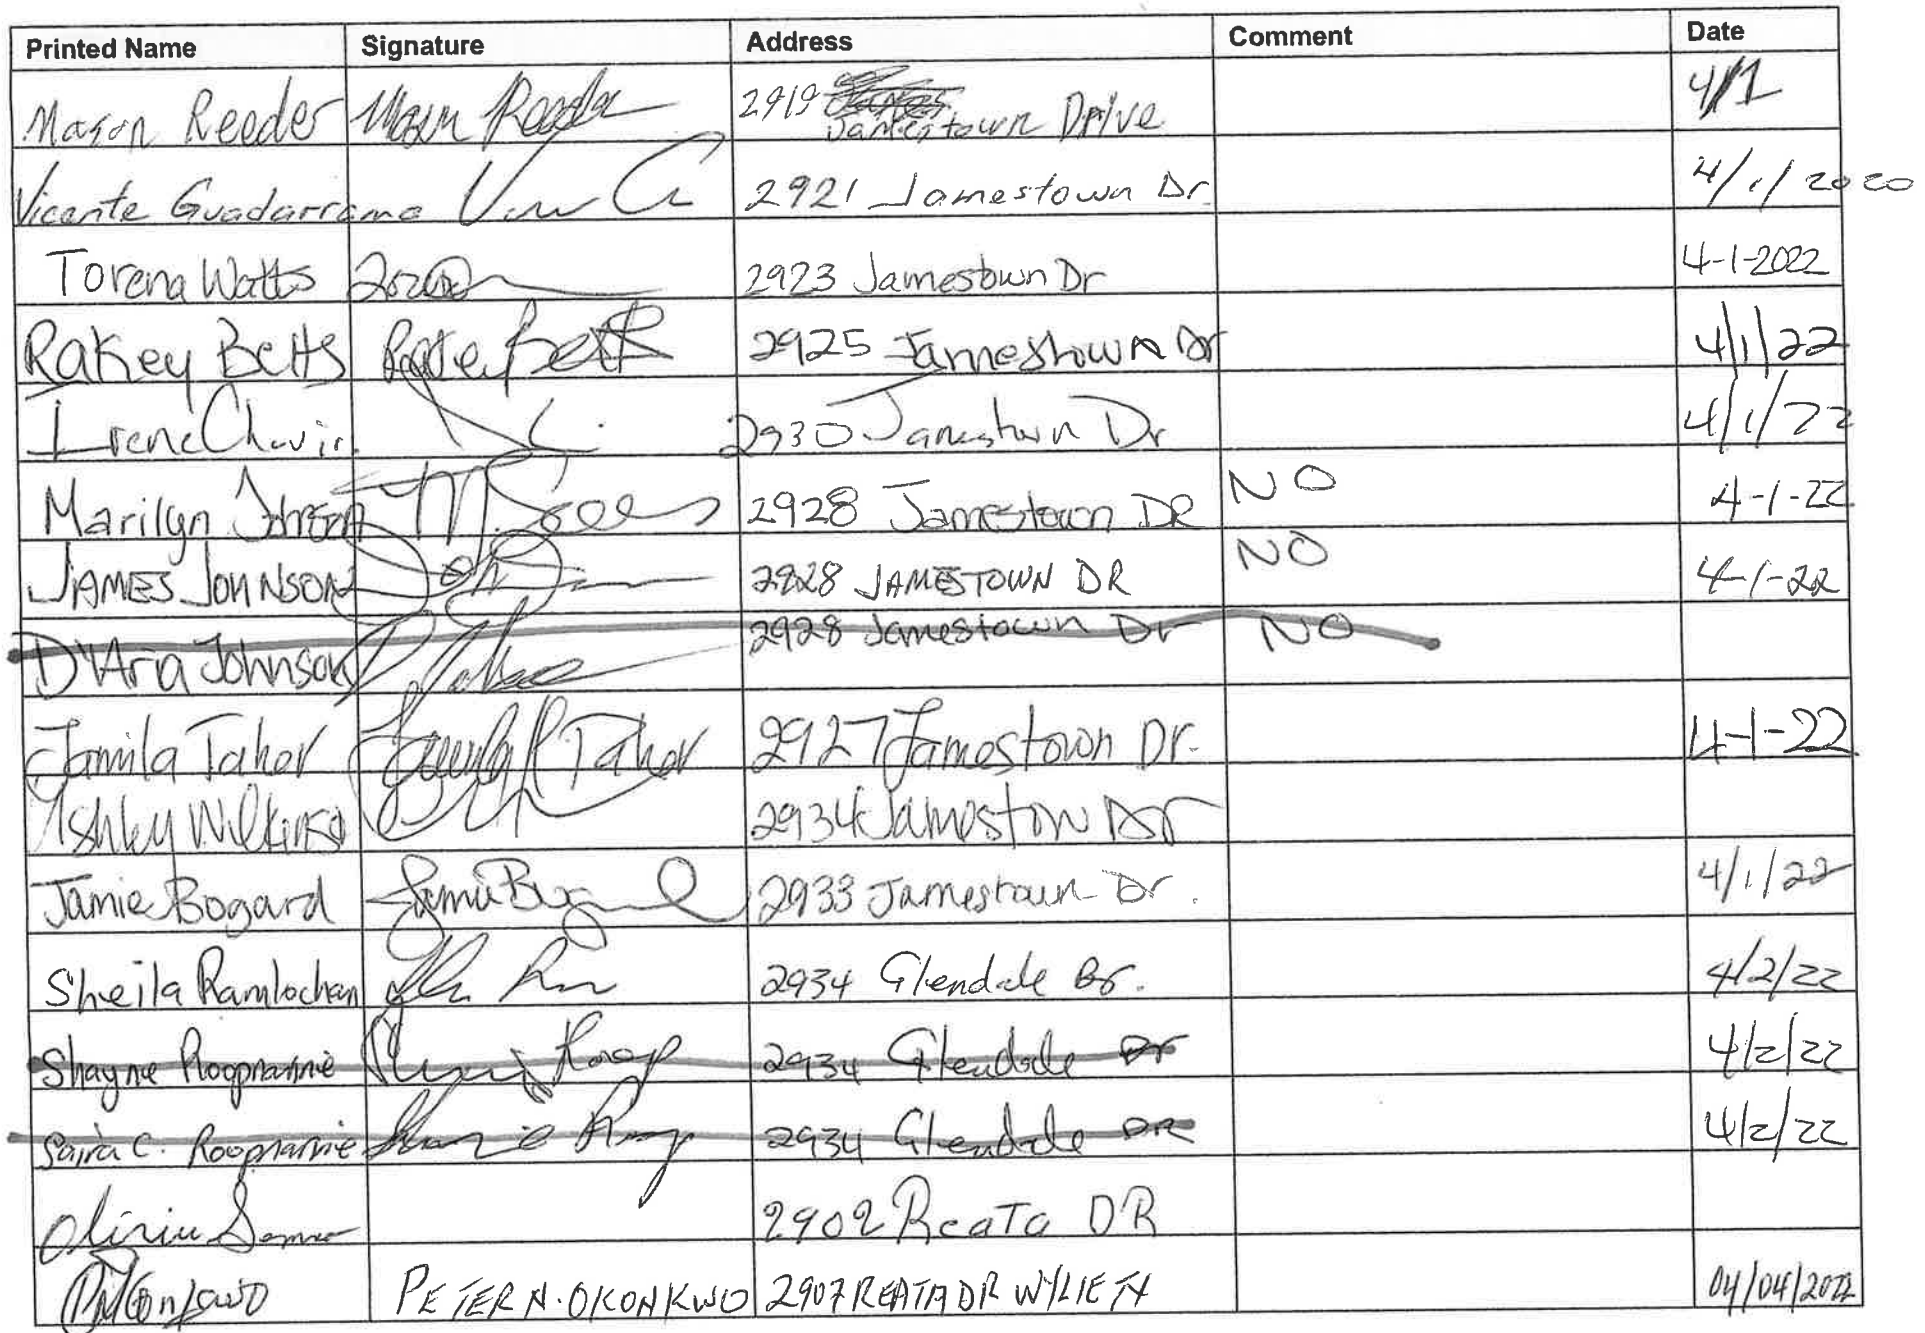 Printed Name Signature Address Comment Date
Mason Reeder Mason Reeder 2919 Jamestown Drive 4/1
Vicente Guadarrama 2921 Jamestown Dr. 4/1/2020
Torena Watts 2923 Jamestown Dr 4-1-2022
Rakey Betts Rakey Betts 2925 Jamestown Dr 4/1/22
Irene 2930 Jamestown Dr 4/1/22
Marilyn Johnson 2928 Jamestown DR NO 4-1-22
JAMES JOHNSON 2928 JAMESTOWN DR NO 4-1-22
D'Aria Johnson 2928 Jamestown Dr NO
Jamila Taher Jamila R Taher 2927 Jamestown Dr. 4-1-22
Ashley Wilkinso 2934 Jamestow Dr
Jamie Bogard Jamie Bogard 2933 Jamestown Dr. 4/1/22
Sheila Ramlochan 2934 Glendale Dr. 4/2/22
Shayne Roopnarine 2934 Glendale Dr 4/2/22
Saira C. Roopnarine 2934 Glendale DR 4/2/22
2902 Reata DR
PETER N. OKONKWO 2907 REATA DR WYLIE TX 04/04/2022